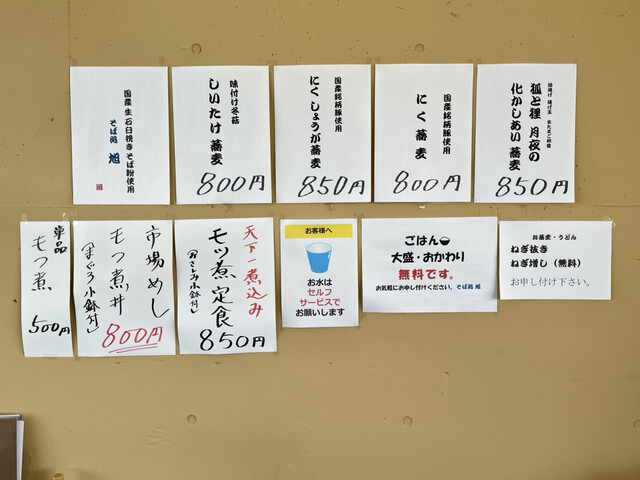 油揚げ 揚げ玉 生たまご 野菜
狐と狸 月夜の
化かしあい蕎麦
850円
国産銘柄豚使用
にく蕎麦
800円
国産銘柄豚使用
にくしょうが蕎麦
850円
味付け冬菇
しいたけ蕎麦
800円
国産 生 石臼挽き そば粉使用
そば処 旭
単品
もつ煮
500円
市場めし
もつ煮丼
(まぐろ小鉢付)
800円
天下一煮込み
モツ煮定食
(おさしみ小鉢付)
850円
お客様へ
お水は
セルフ
サービスで
お願いします
ごはん
大盛・おかわり
無料です。
お気軽にお申し付けください。そば処 旭
お蕎麦・うどん
ねぎ抜き
ねぎ増し（無料）
お申し付け下さい。